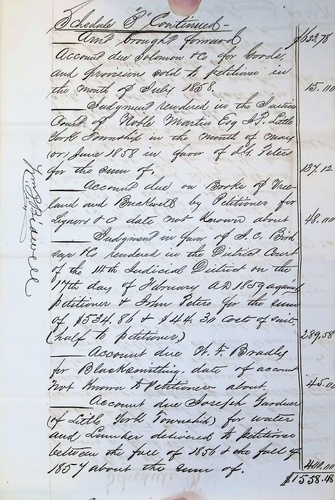 Schedule "B" Continued -
Amt brought forward $123.78
Account due Solomon & Co for Goods
and provisions sold to petitioner in
the month of July 1858. 15.00
Judgment rendered in the Justice
Court of Noble Martin Esq J.P. Little
York Township in the month of May
or June 1858 in favor of Peters
for the sum of 137.12
Account due on Books of
land and Buckwell by Petitioner for
Liquors &c date not known about 48.00
Judgment in favor of S. C.
& Co rendered in the District Court
of the 14th Judicial District on the
17th day of February AD 1859 against
petitioner & John Peters for the sum
of $534.86 & $44.30 cost of suit-
(half to petitioner) 289.58
Account due W. F. Bradly
for Blacksmithing, date of account
not known to Petitioner about 45.00
Account due Joseph Gardner
(of Little York Township) for water
and Lumber delivered to Petitioner
between the fall of 1856 & the fall of
1857 about the sum of. 400.00
$1558.48